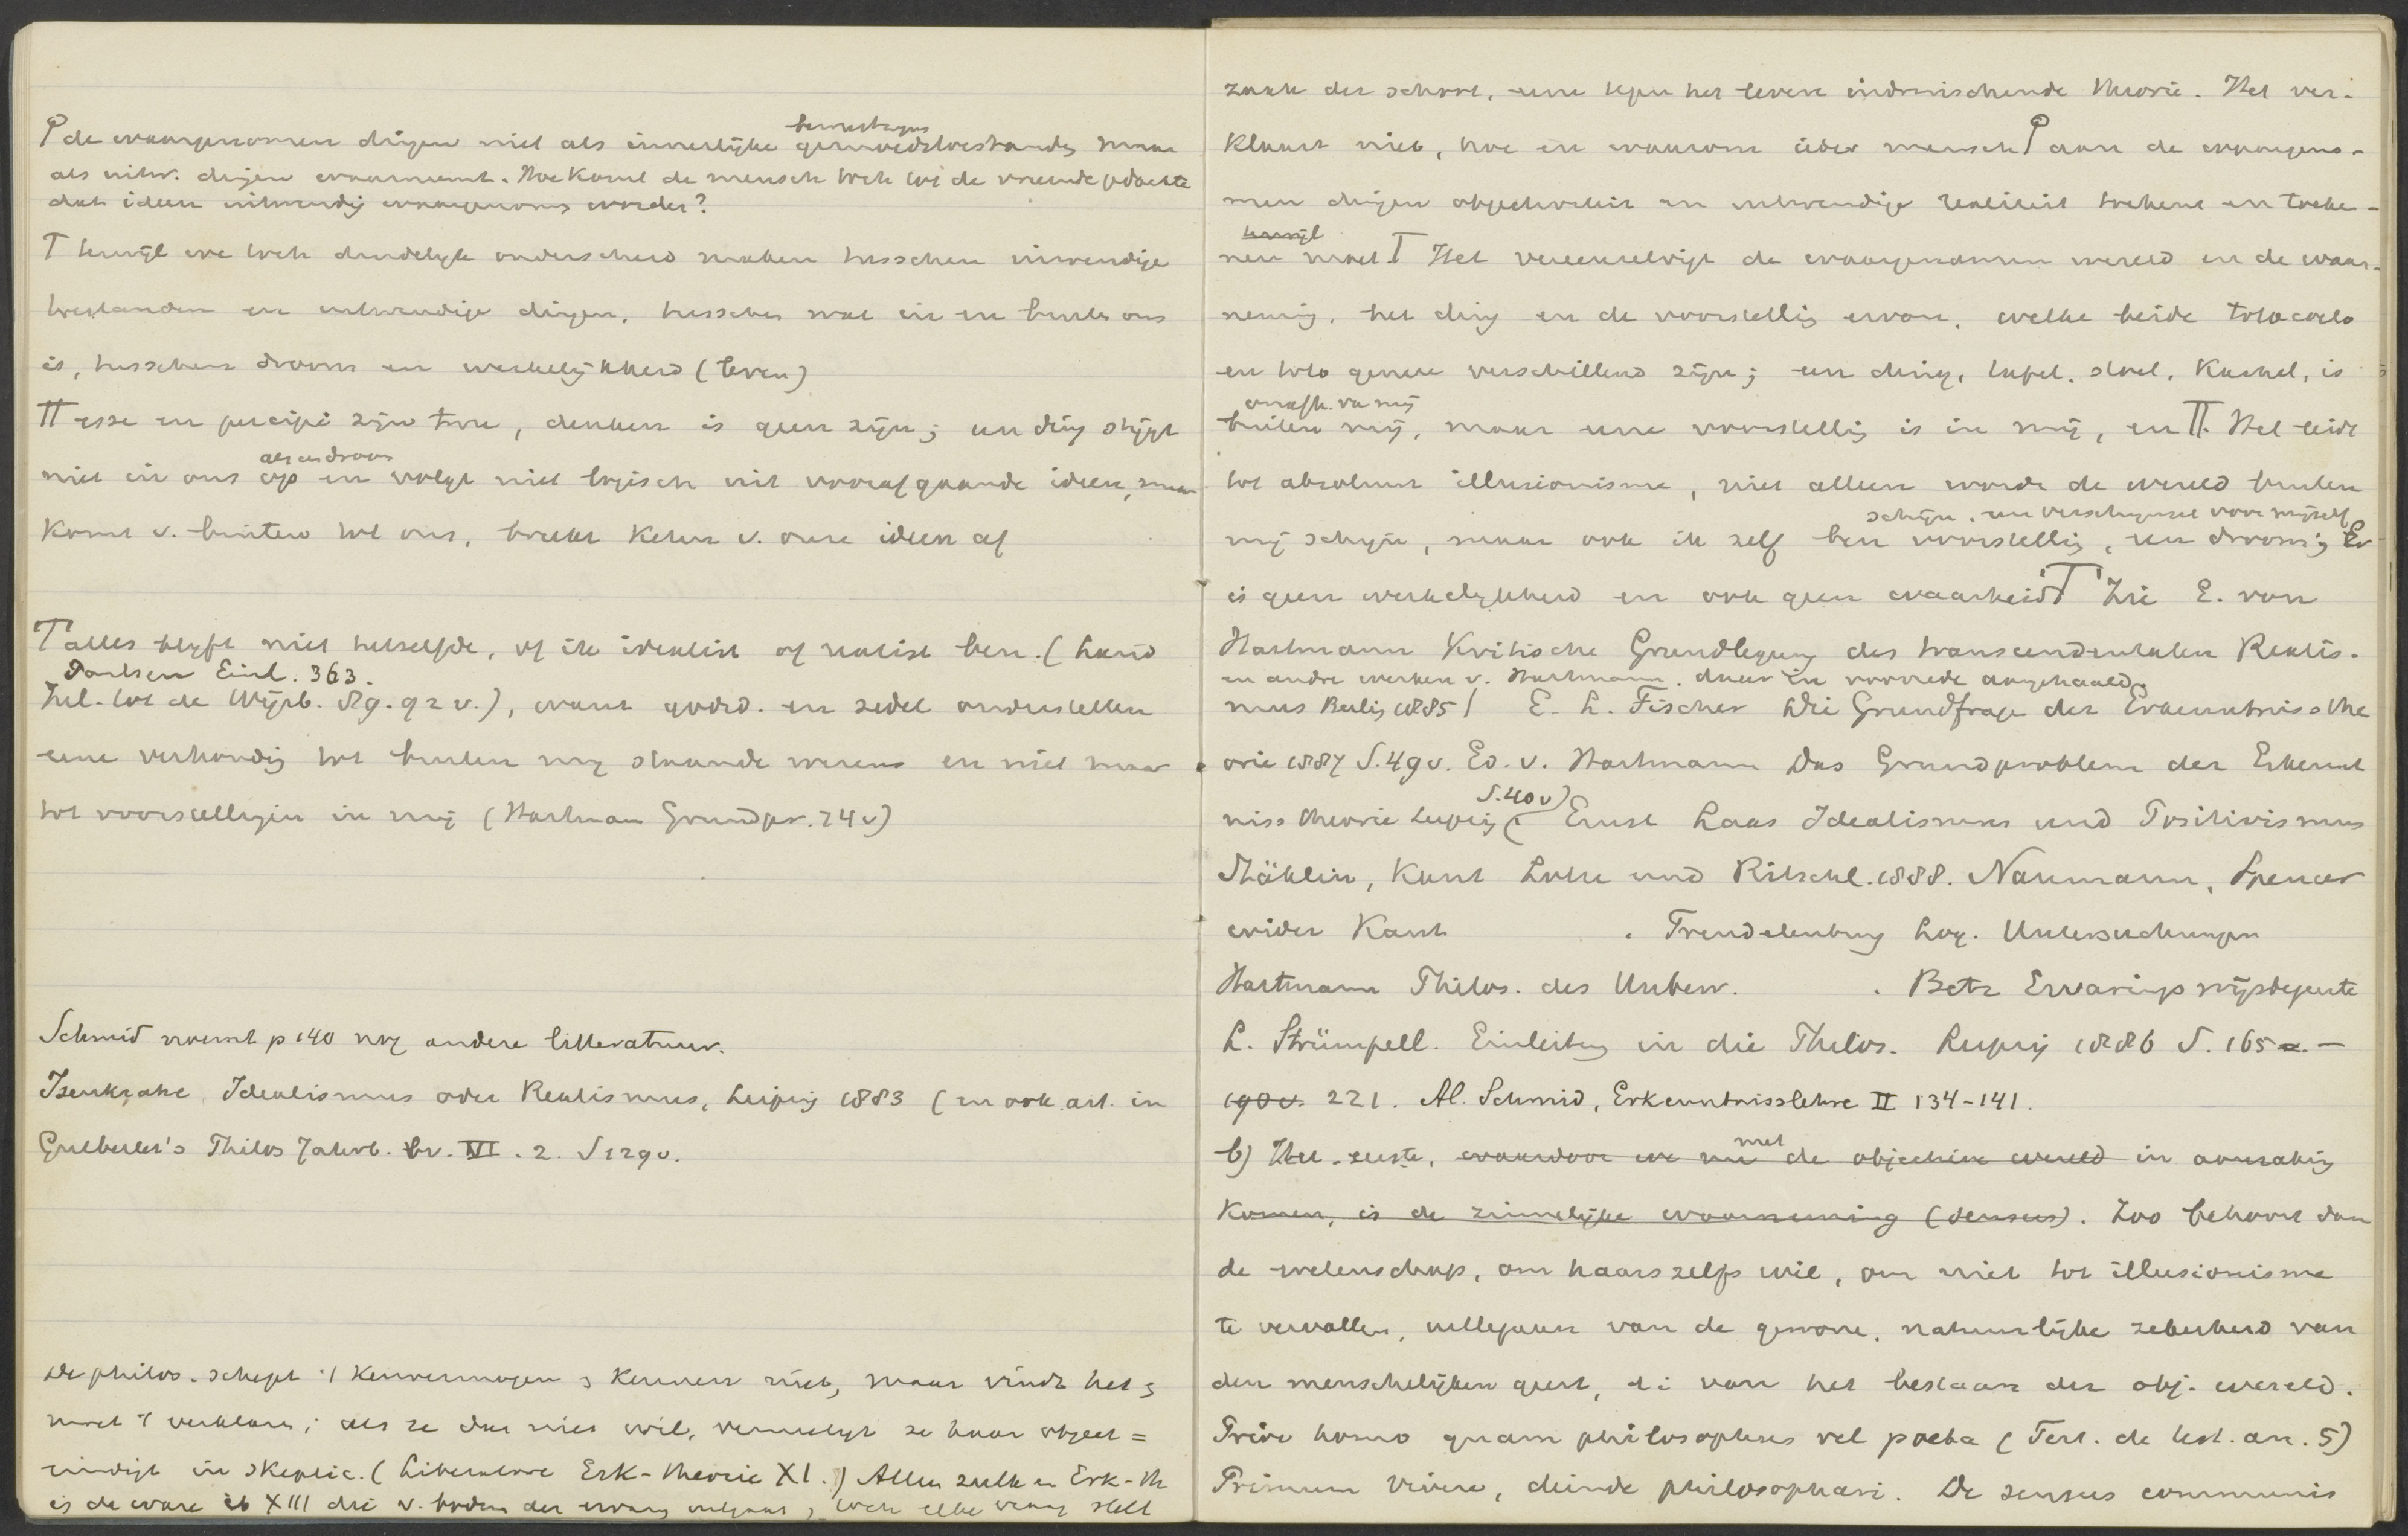 de waargenomen dingen niet als innerlijke bewustzijns gemoedstoestanden maar
als uitw. dingen waarneemt. Hoe komt de mensch toch tot de vreemde gedachte
dat ideen uitwendig waargenomen worden?
T terwijl we toch duidelijk onderscheid maken tusschen inwendige
toestanden en uitwendige dingen, tusschen wat in en buiten ons
is, tusschen droom en werkelijkheid (leven)
TT esse en percipi zijn twee, denken is geen zijn; een ding stijgt
niet in ons als een droom op en volgt niet logisch uit voorafgaande ideen, maar
komt v. buiten tot ons, breekt keten v. onze ideen af
T alles blijft niet hetzelfde, of ik idealist of realist ben. (Land
Paulsen Einl. 363.
Inl. tot de Wijsb. 89. 92 v.), want godsd. en zedel. onderstellen
eene verhouding tot buiten mij staande wezens en niet maar
tot voorstellingen in mij (Hartman Grundpr. 74 v)
Schmid noemt p 140 nog andere litteratuur.
Isenkrahe, Idealismus oder Realismus, Leipzig 1883 (en ook art. in
Gutberlet's Philos Jahrb. VI. 2. S 129 v.
De philos. schept 't kenvermogen en kennen niet, maar vindt het en
moet 't verklaren; als ze dat niet wil, vernietigt ze haar object =
eindigt in skeptic. (Liberatore Erk-theorie XI.) Alleen zulk en Erk-th
is de ware ib XIII die v. bodem der ervaring uitgaat, toch elke vraag stelt
zaak der school, eene tegen het leven indruischende theorie. Het ver-
klaart niet, hoe en waarom ieder mensch aan de waargeno-
men dingen objectiviteit en uitwendige realiteit toekent en toeke-
terwijl
nen moet. T Het vereenzelvigt de waargenomen wereld en de waar-
neming, het ding en de voorstelling ervan, welke beide toto coelo
en toto genere verschillend zijn; een ding, tafel, stoel, kachel, is
onafh. van mij
buiten mij, maar eene voorstelling is in mij, en TT. Het leidt
tot absoluut illusionisme, niet alleen wordt de wereld buiten
schijn, een verschijnsel voor mijzelf
mij schijn, maar ook ik zelf ben voorstelling, een droom; Er
is geen werkelijkheid en ook geen waarheid T Zie E. von
Hartmann Kritische Grundlegung des transcendentalen Realis-
en andre werken v. Hartmann, daar in voorrede aangehaald.
mus Berlin 1885) E. L. Fischer Die Grundfrage der Erkenntnissthe
orie 1887 S. 49 v. Ed. v. Hartmann Das Grundproblem der Erkennt
niss theorie Leipzig (S. 40 v) Ernst Laas Idealismus und Positivismus
Stählin, Kant Lotze und Ritschl. 1888. Naumann, Spencer
wider Kant . Trendelenburg Log. Untersuchungen
Hartmann Philos. des Unbew. . Betz Ervaringswijsbegeerte
L. Strümpell. Einleitung in die Philos. Leipzig 1886 S. 165 -
190 v. 221. Al. Schmid, Erkenntnisslehre II 134-141.
b) Het eerste, waardoor we nu met de objectieve wereld in aanraking
komen, is de zinnelijke waarneming (sensus). Zoo behoort dan
de wetenschap, om haars zelfs wil, om niet tot illusionisme
te vervallen, uittegaan van de gewone, natuurlijke zekerheid van
den menschelijken geest, d: i van het bestaan der obj. wereld.
Prior homo quam philosophus vel poeta (Tert. de test. an. 5)
Primum vivere, deinde philosophari. De sensus communis